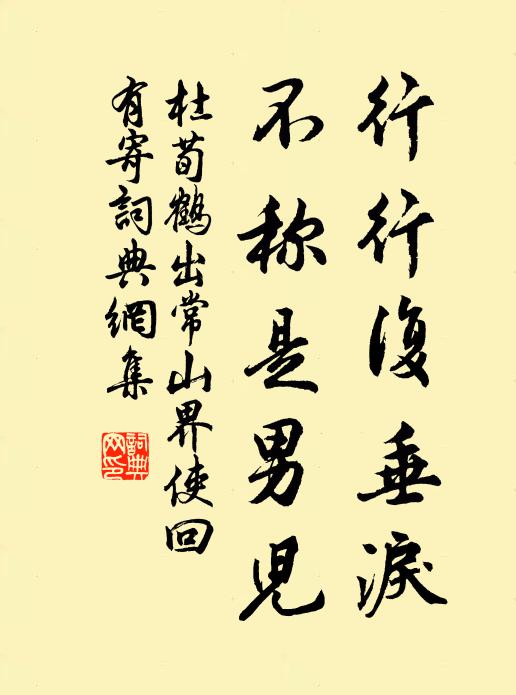 行行復垂淚
不称是男児
杜荀鶴出常山界使回
有寄詞典網集
詞典
网印